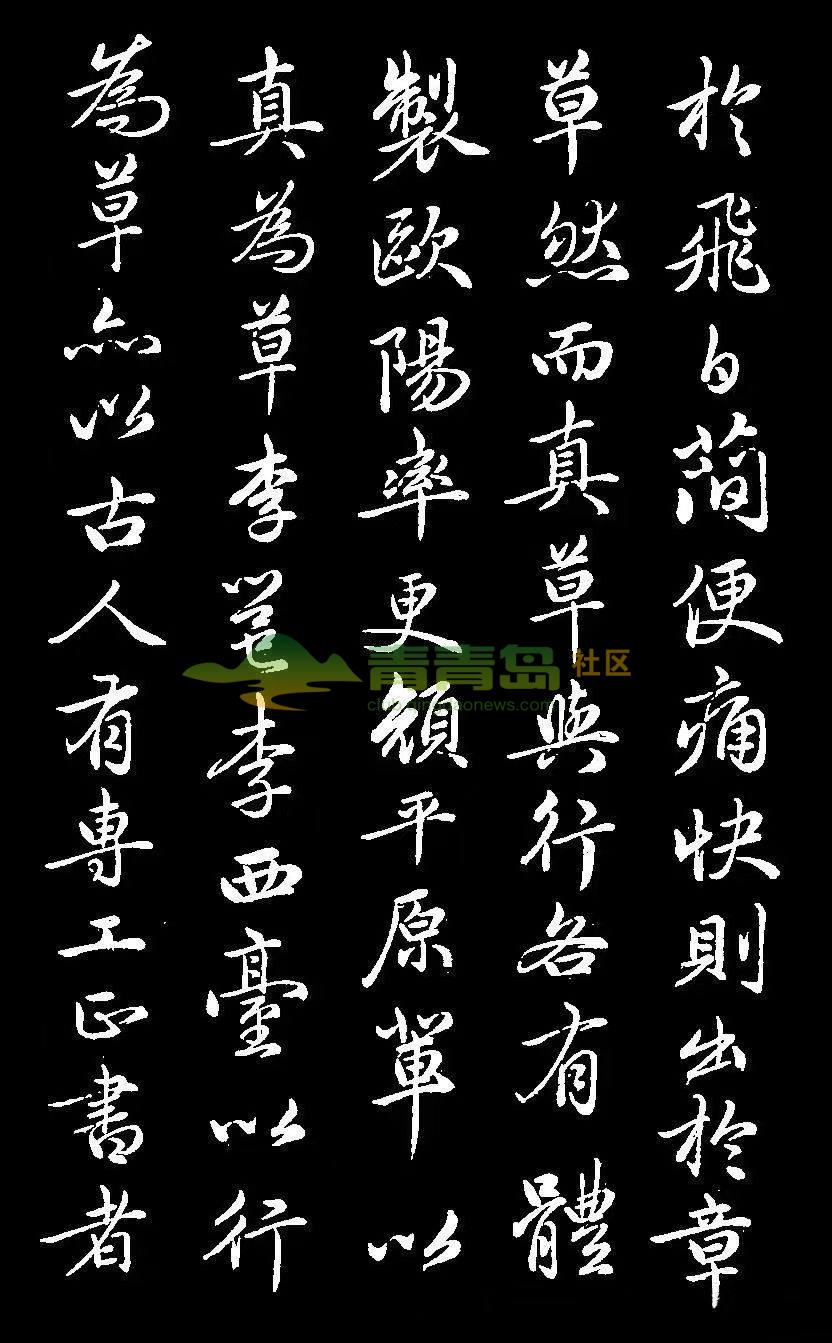 於飛白簡便痛快則出於章
草然而真草與行各有體
製歐陽率更顏平原輩以
真為草李邕李西臺以行
為草亦以古人有專工正書者
青青岛社区